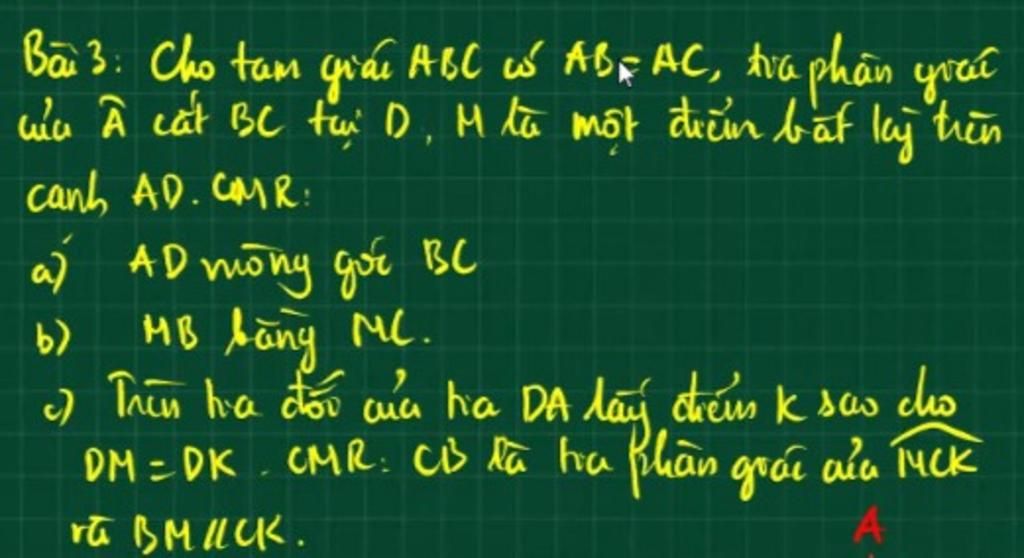 Bài 3: Cho tam giác ABC có AB = AC, tia phân giác
của Â cắt BC tại D, M là một điểm bất kỳ trên
cạnh AD. CMR:
a) AD vuông góc BC
b) MB bằng MC.
c) Trên tia đối của tia DA lấy điểm K sao cho
DM = DK. CMR: CB là tia phân giác của MCK
và BM // CK.
A